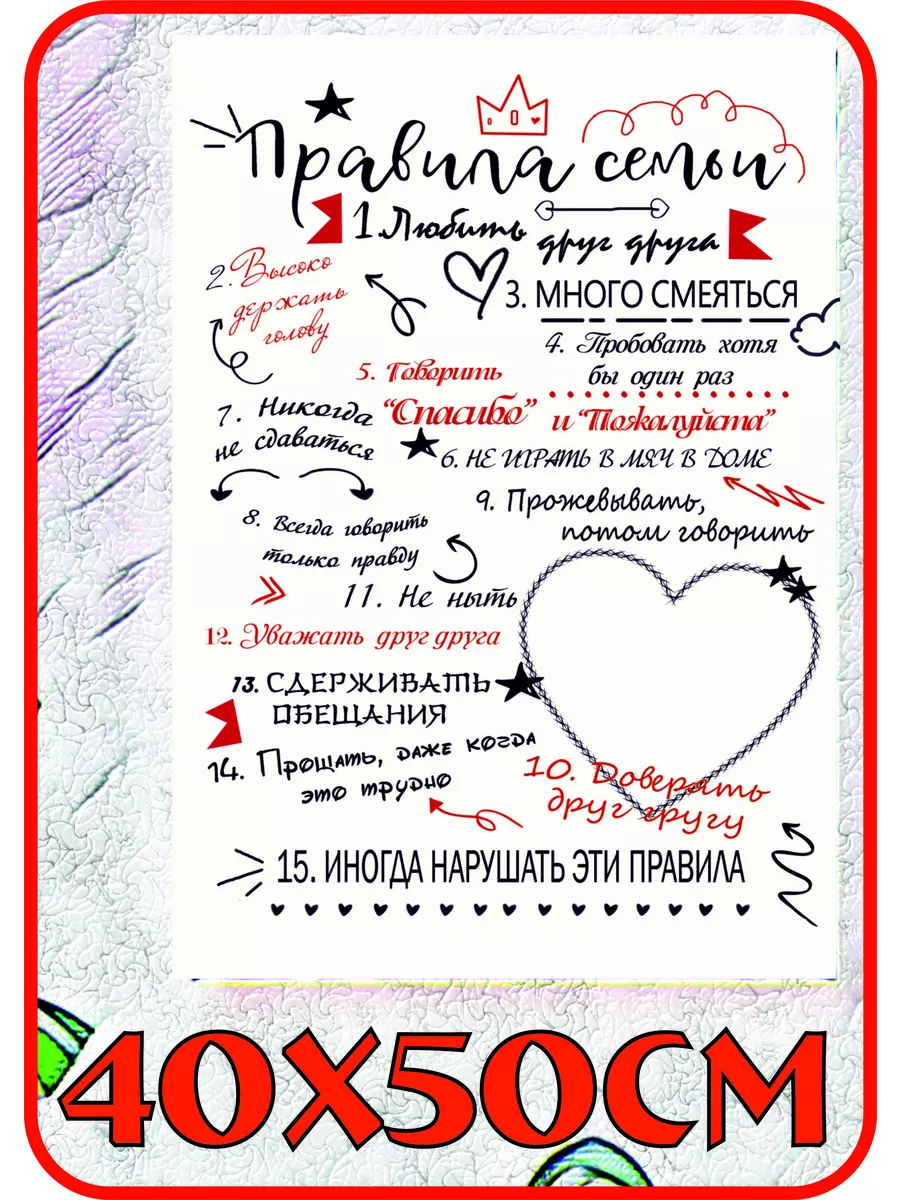 Правила семьи
1. Любить друг друга
2. Высоко
держать
голову
3. МНОГО СМЕЯТЬСЯ
4. Пробовать хотя
бы один раз
5. Говорить
"Спасибо" и "Пожалуйста"
7. Никогда
не сдаваться
6. НЕ ИГРАТЬ В МЯЧ В ДОМЕ
9. Прожевывать,
потом говорить
8. Всегда говорить
только правду
11. Не ныть
12. Уважать друг друга
13. СДЕРЖИВАТЬ
ОБЕЩАНИЯ
14. Прощать, даже когда
это трудно
10. Доверять
друг гругу
15. ИНОГДА НАРУШАТЬ ЭТИ ПРАВИЛА
40X50СМ